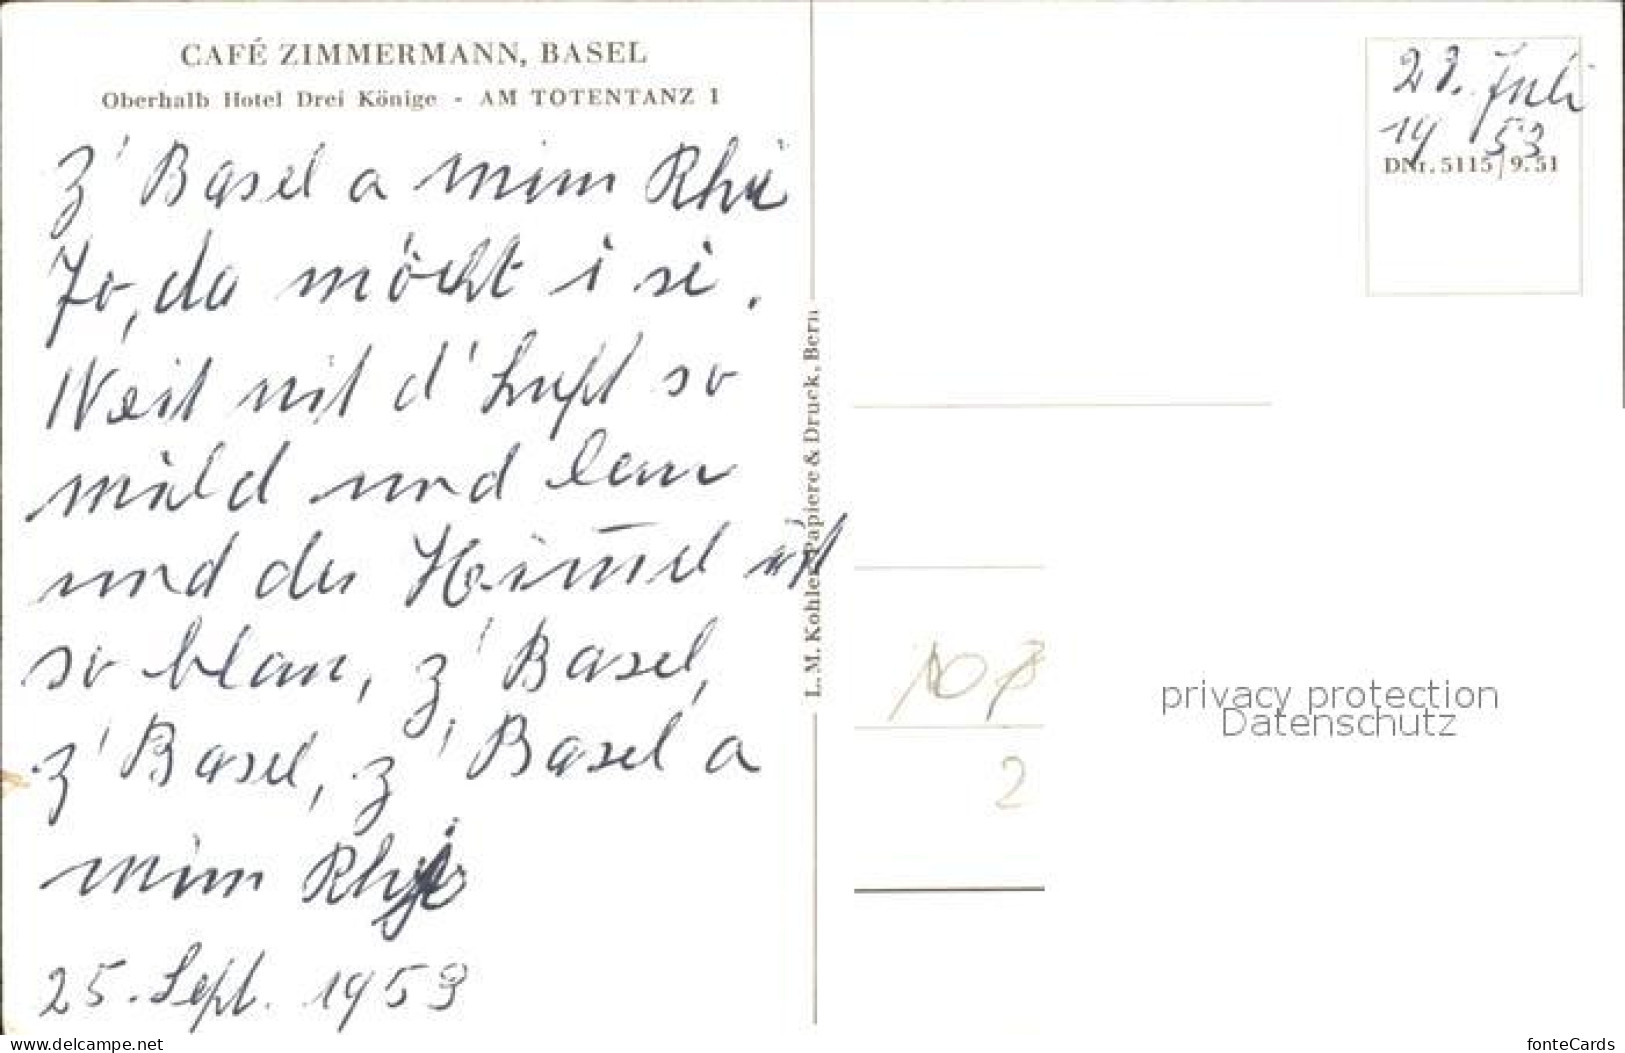 CAFÉ ZIMMERMANN, BASEL
Oberhalb Hotel Drei Könige - AM TOTENTANZ 1
z' Basel a mim Rhi
Jo, da möcht i si.
Weit nit d' Luft so
mild und lau
und der Himmel ist
so blau, z' Basel,
z' Basel, z' Basel a
mim Rhi
25. Sept. 1953
L. M. Kohler, Papiere & Druck, Bern
Juli
19 53
DNr. 5115/9.51
2
privacy protection
Datenschutz
www.delcampe.net
fonteCards